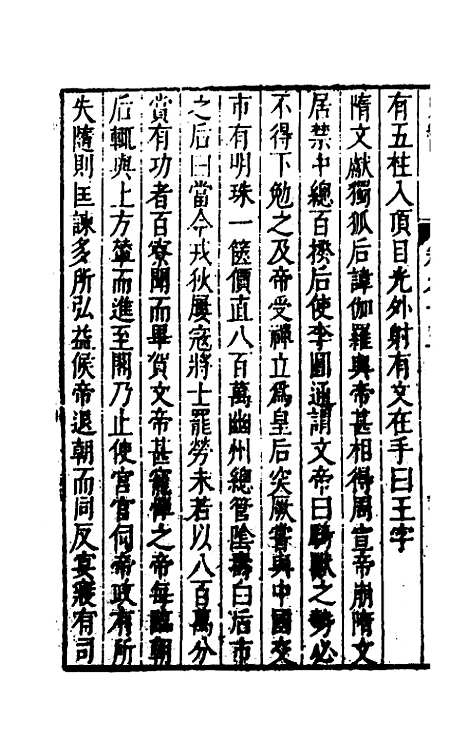 有五柱入頂目光外射有文在手曰王字
隋文獻獨狐后諱伽羅與帝甚相得周宣帝崩隋文
居禁中總百揆后使李圓通謂文帝曰騎獸之勢必
不得下勉之及帝受禪立爲皇后突厥嘗與中國交
市有明珠一篋價直八百萬幽州總管陰壽曰后市
之后曰當今戎狄屢寇將士罷勞未若以八百萬分
賞有功者百寮聞而畢賀文帝甚寵憚之帝每臨朝
后輒與上方輦而進至閣乃止使宮官伺帝政有所
失隨則匡諫多所弘益候帝退朝而同反宴寢有司